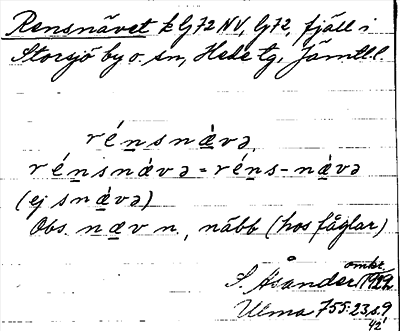 Rensnävet k G72 NV, G72, fjäll i
Storsjö by o. sn, Hede tg, Jämtl. l.
rénsnæ̀və
rénsnæ̀və = réns-næ̀və
(ej snæ̀və)
Obs. næv n., näbb (hos fåglar)
omkr.
S. Åsander 1922
Ulma 755:23 s. 9
42